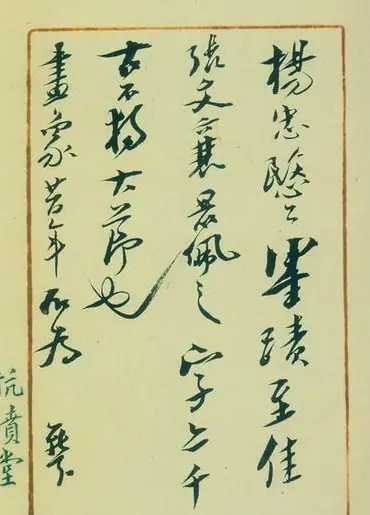 楊忠愍公蹟至佳
張文襄最佩之字亦千
古不獨大節也
畫象昔年所為
堂